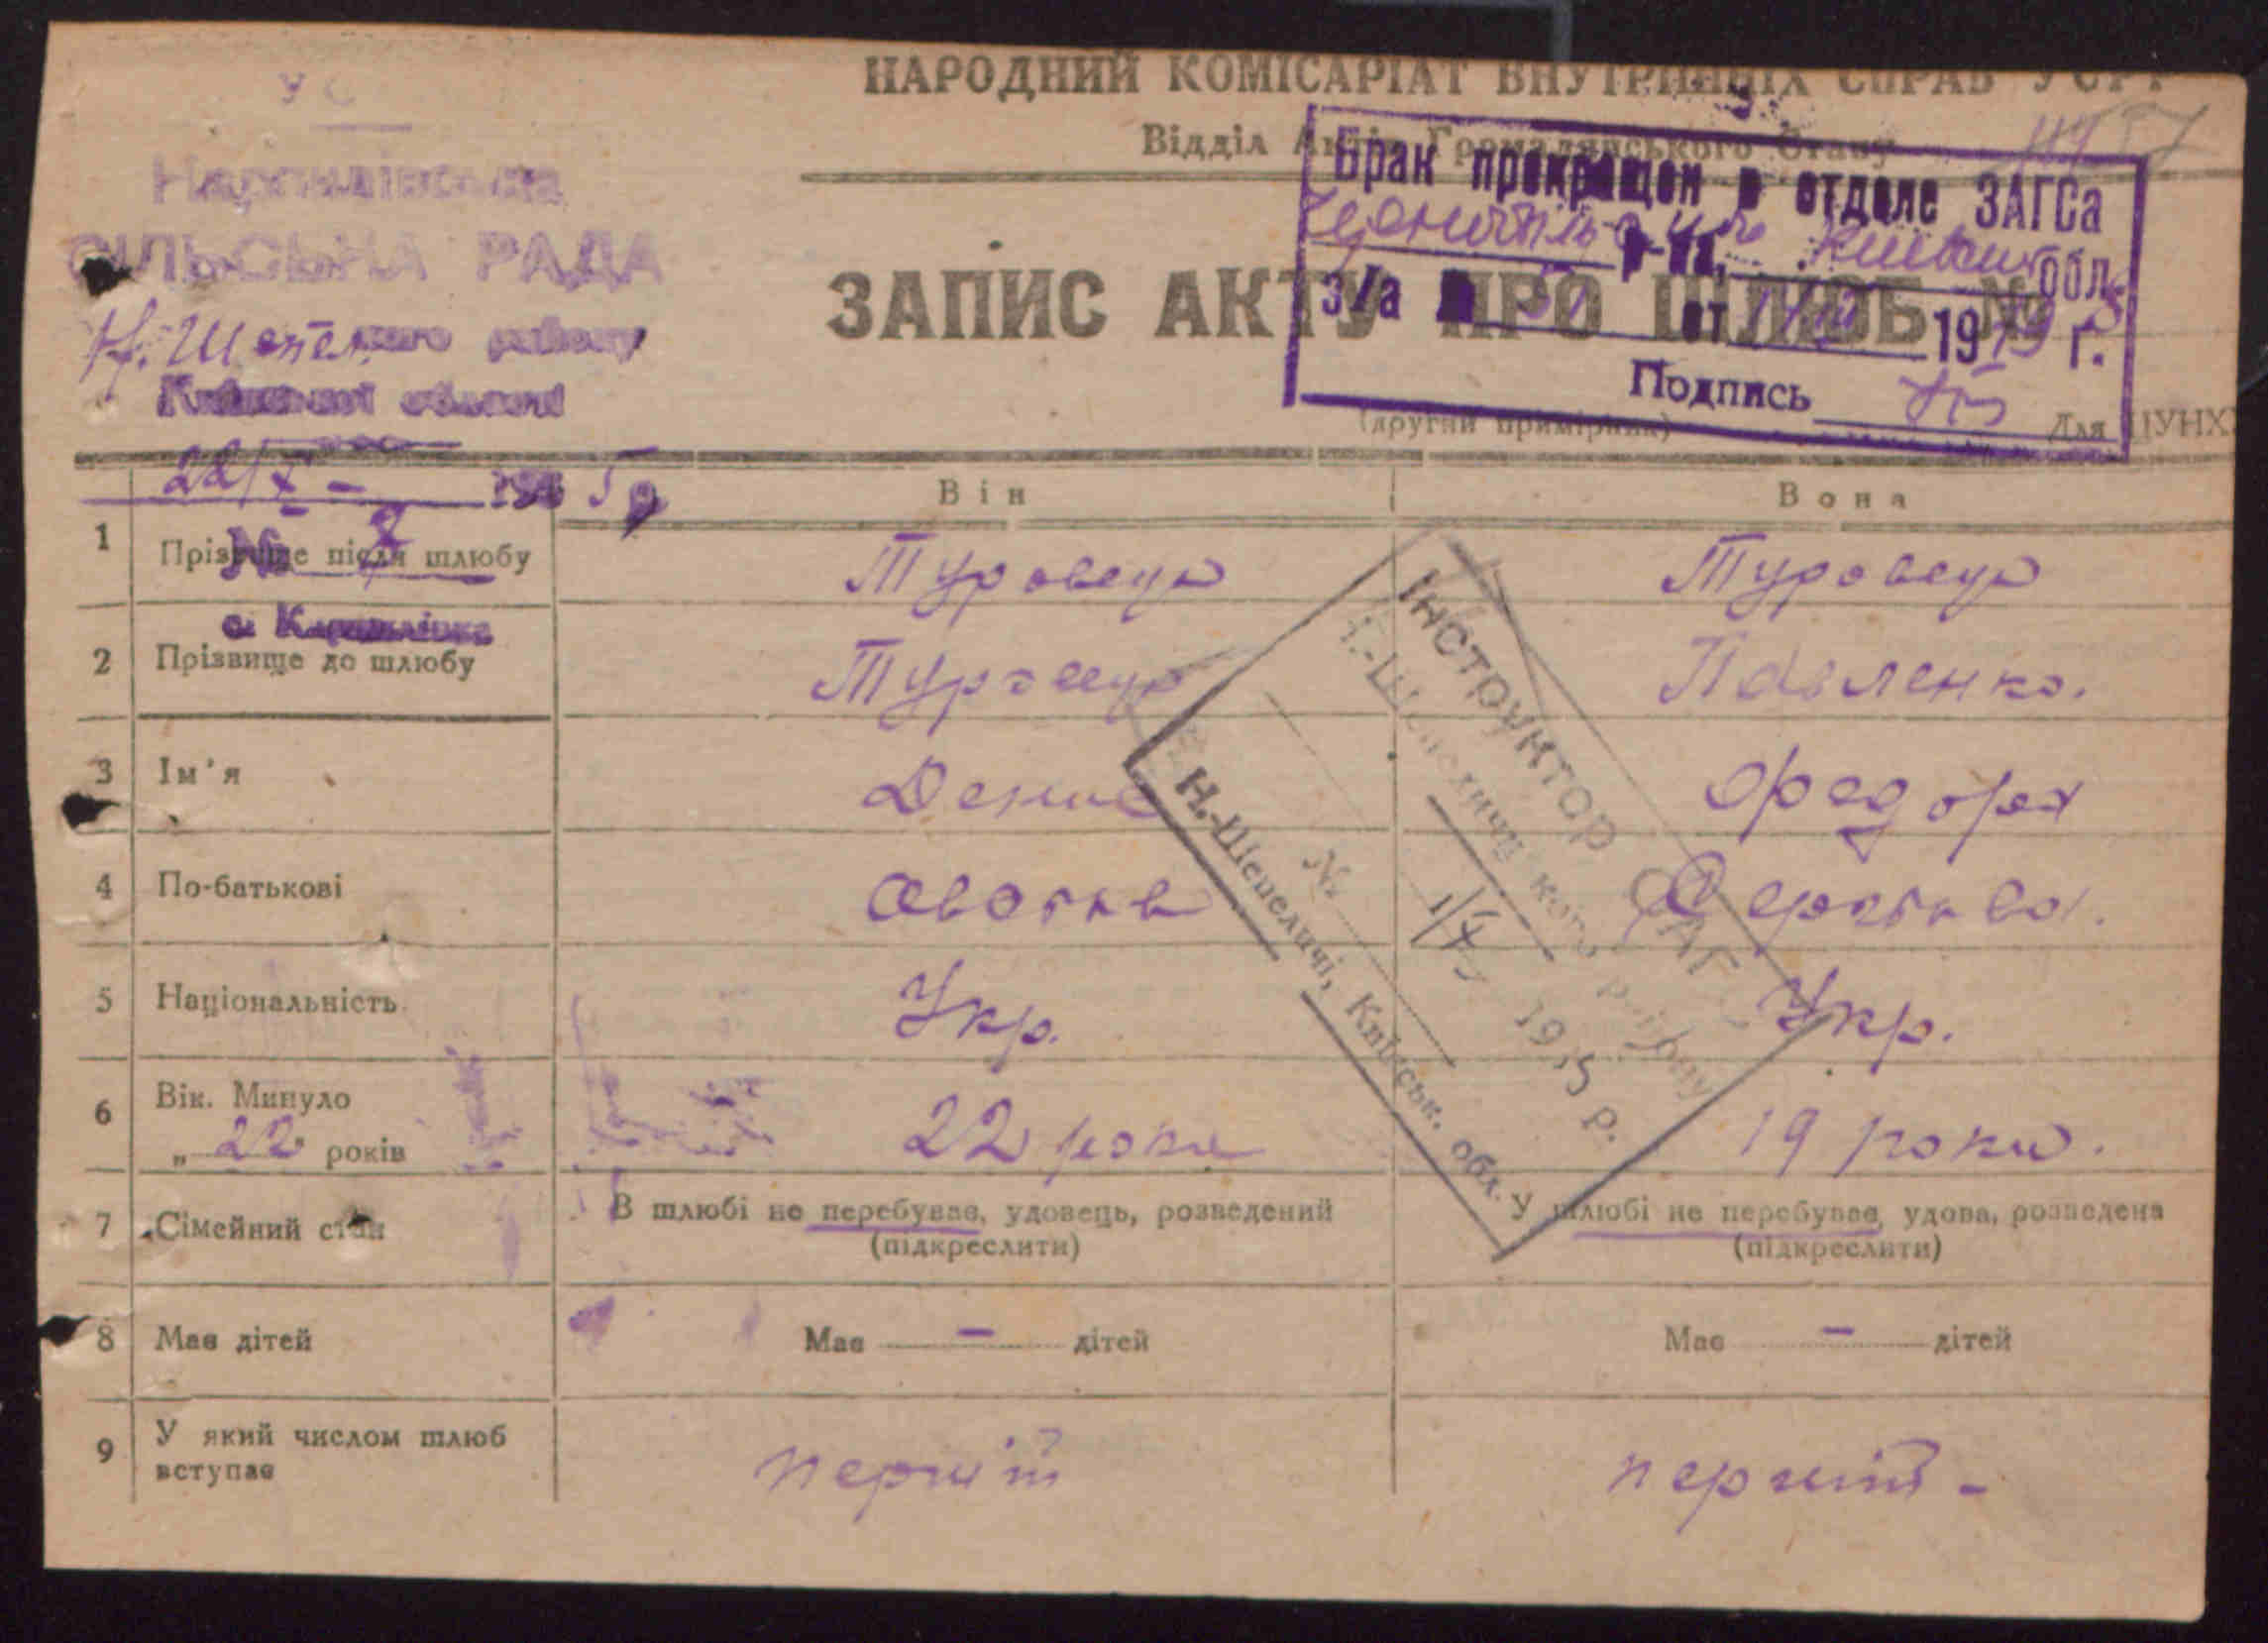 НАРОДНИЙ КОМІСАРІАТ ВНУТРІШНІХ СПРАВ УСРР
Відділ Актів Громадянського Стану
СІЛЬСЬКА РАДА
Н. Шепел ського району
Київської області
22/X - 1935 р
№ 7
с. Карпилівка
Брак прекращен в отделе ЗАГСа
р-на, обл.
з/а № 51 от 19 г.
Подпись
ЗАПИС АКТУ ПРО ШЛЮБ №
(другий примірник) Для ЦУНХ
Він Вона
1 Прізвище після шлюбу Туровець Туровець
2 Прізвище до шлюбу Туровець Павленко.
3 Ім'я Денис
4 По-батькові
5 Національність Укр. Укр.
6 Вік. Минуло „22" років 22 роки 19 роки.
7 Сімейний стан В шлюбі не перебуває, удовець, розведений У шлюбі не перебуває, удова, розведена
(підкреслити) (підкреслити)
8 Має дітей Має — дітей Має — дітей
9 У який числом шлюб вступає перший перший -
Інструктор ЗАГС
Н.-Шепелицького району
№
1/X 1935 р.
Н.-Шепеличі, Київськ. обл.